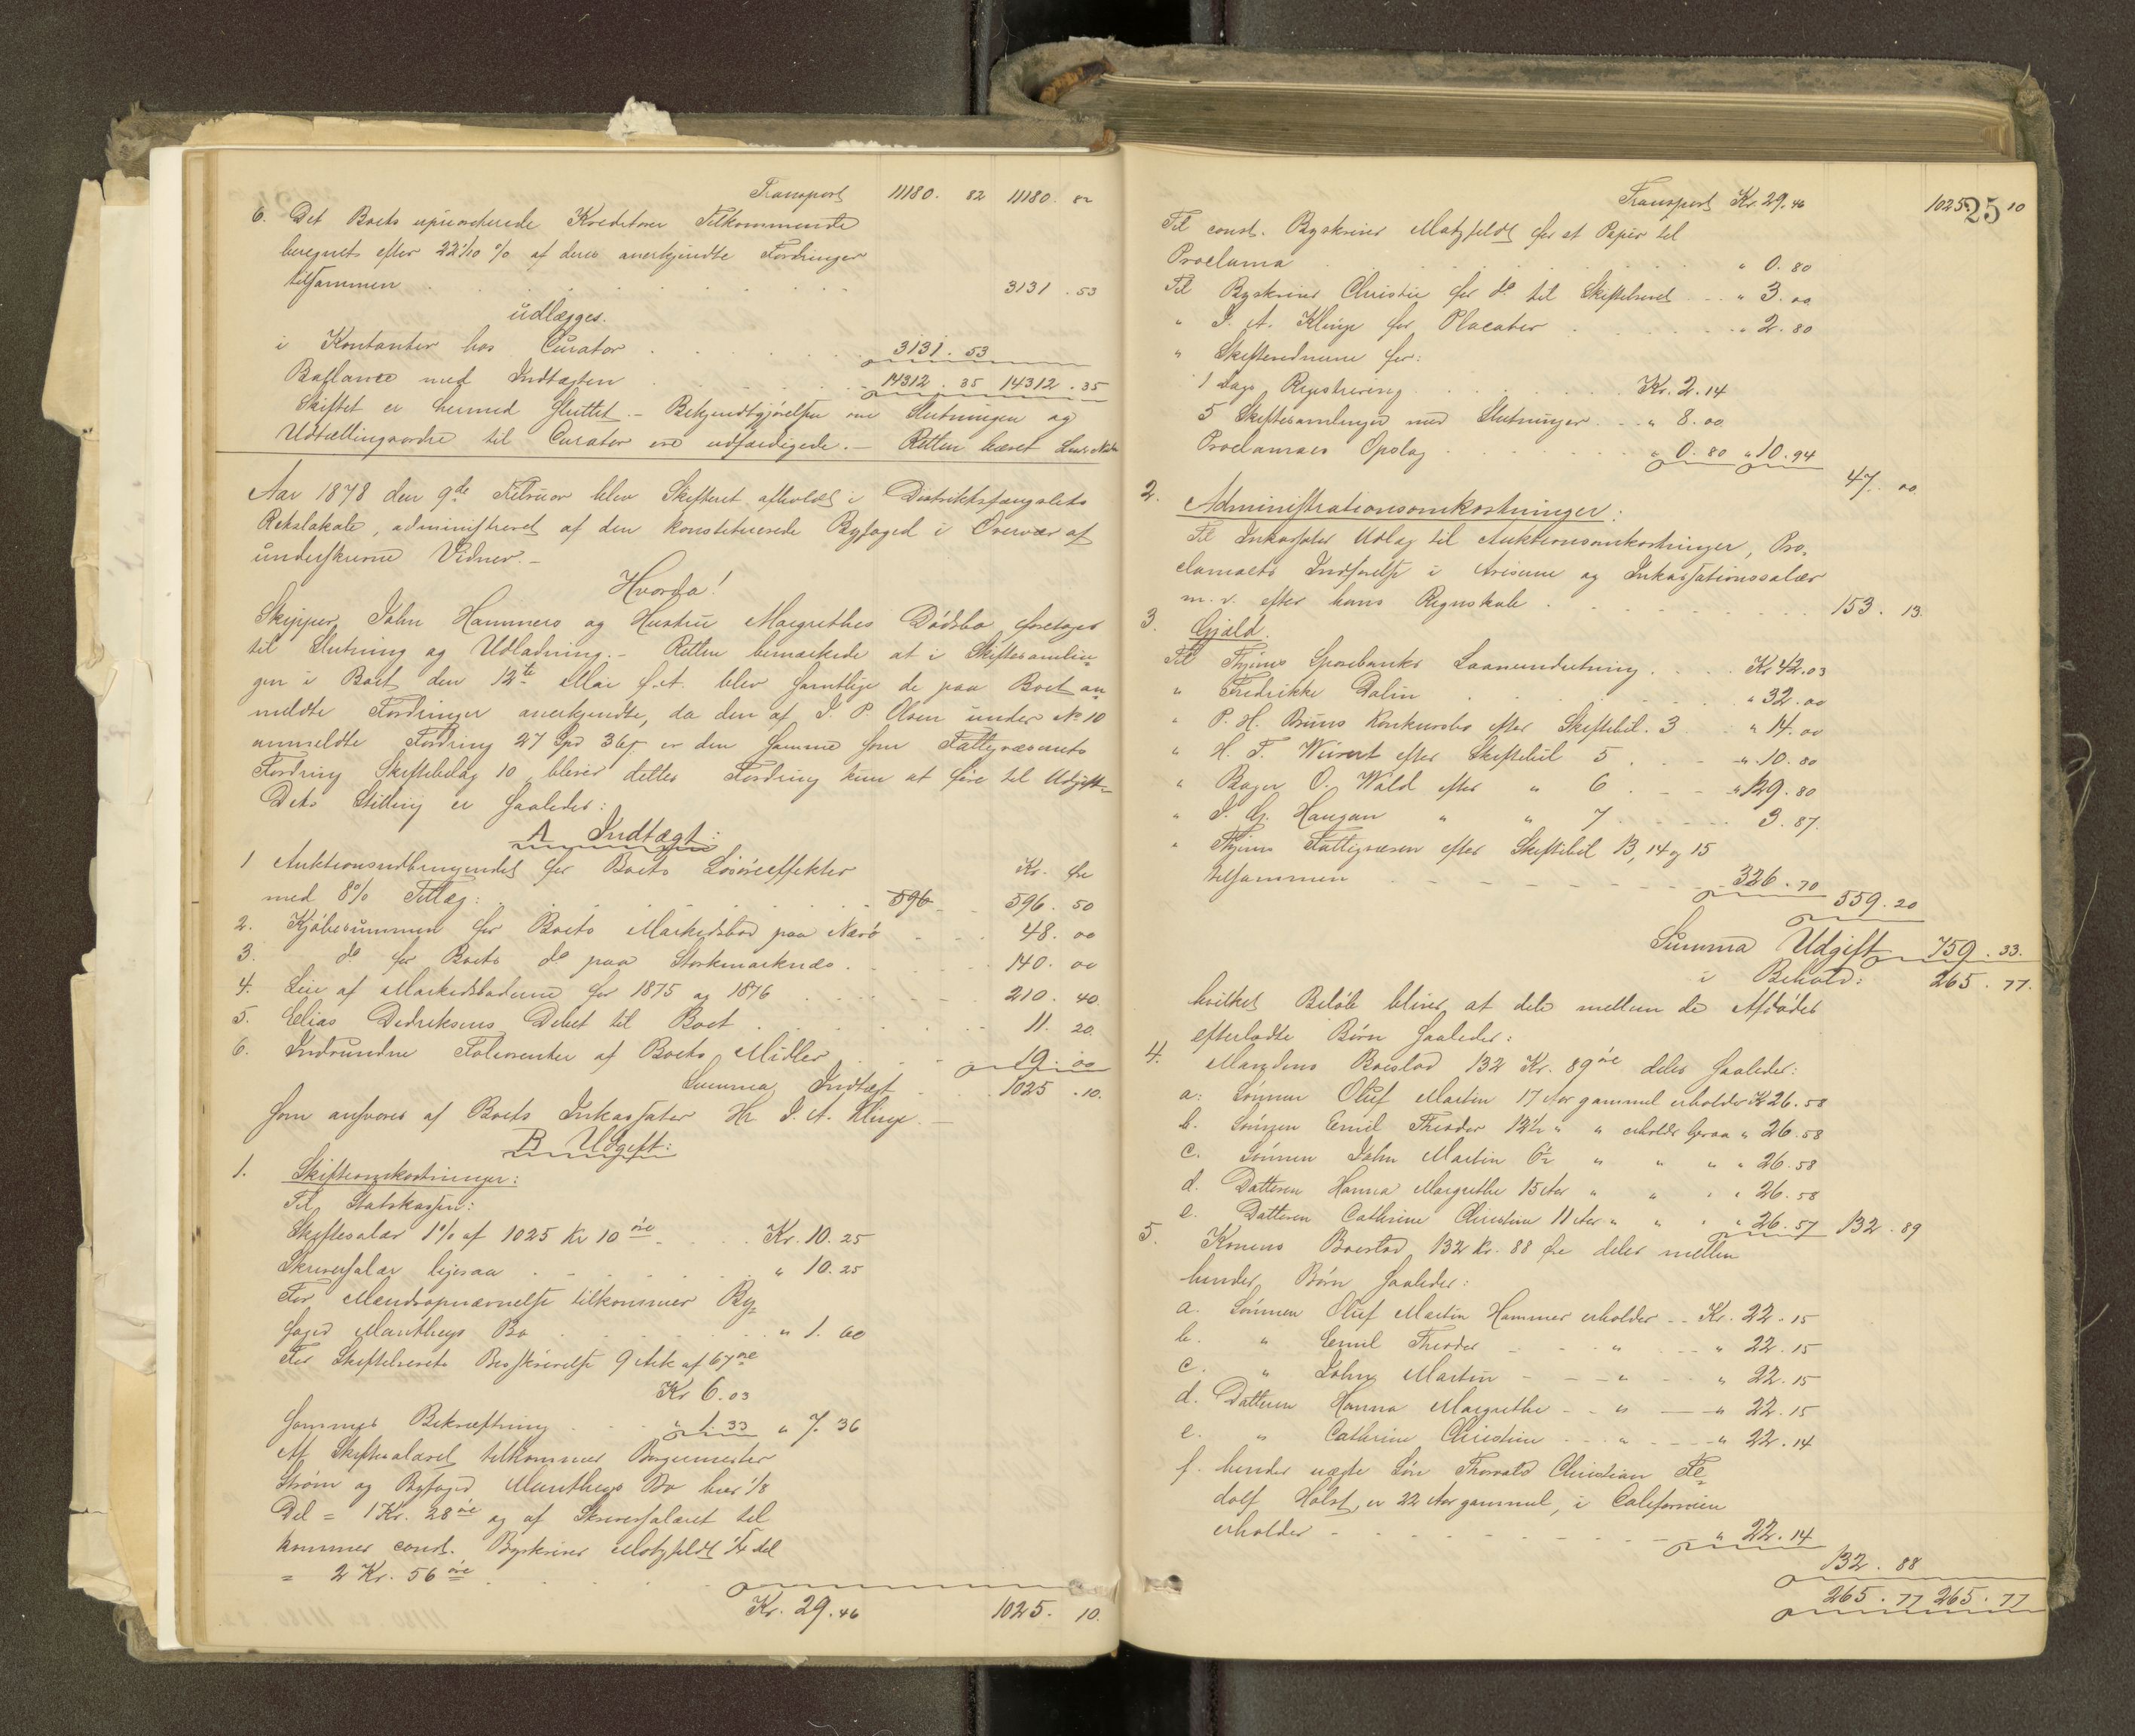 Transport 11180. 82 11180. 82
6. Det Boets uprioriterede Kreditorer Tilkommende
beregnet efter 22 1/10 % af deres anerkjendte Fordringer
tilsammen . . . 3131. 53
udlægges.
i Kontanter hos Curator . . . 3131. 53
Ballance med Indtægten . . . 14312. 35 14312. 35
Skiftet er hermed sluttet. – Bekjendtgjørelsen om Slutningen og
Udtællingsordre til Curator ere udfærdigede. – Retten hævet
Aar 1878 den 9de Februar blev Skifteret afholdt i Distriktsfængslets
Retslokale, administreret af den konstituerede Byfoged i Overvær af
underskrevne Vidner. –
Hvorda!
Skipper John Hammers og Hustru Margrethes Dødsbo foretoges
til Slutning og Udlodning. – Retten bemærkede at i Skiftesamlin-
gen i Boet den 12te Mai f. A. blev samtlige de paa Boet an-
meldte Fordringer anerkjendte, da den af J. P. Olsen under No 10
anmeldte Fordring 27 Spd 36 ß er den samme som Fattigvæsenets
Fordring Skiftebilag 10, bliver dettes Fordring kun at føre til Udgift.
Dets Stilling er saaledes:
A Indtægt:
1 Auktionsudbringendet for Boets Løsøreeffekter Kr. Øre
med 8% Tillæg: . . . 596 596. 50
2. Kjøbesummen for Boets Markedsbod paa Nærø . . . 48. 00
3. do for Boets do paa Stokmarknæs . . . 140. 00
4. Leie af Markedsboderne for 1875 og 1876 . . . 210. 40
5. Elias Dedriksens Debet til Boet . . . 11. 20
6. Indvundne Foliorenter af Boets Midler . . . 19. 00
Summa Indtægt . . . 1025. 10.
som ansvares af Boets Inkassator Hr. J. A. Klinge. –
B Udgift:
1. Skifteomkostninger:
Til Statskassen:
Skiftesalær 1% af 1025 Kr 10 øre . . . Kr. 10. 25
Skriversalær ligesaa . . . " 10. 25
For Mændsopnævnelse tilkommer By-
foged Mantheys Bo . . . " 1. 60
For Skiftebrevets Beskrivelse 9 Ark af 67 øre
Kr 6. 03
sammes Bekræftning . . . " 1. 33 " 7. 36
Af Skiftesalæret tilkommer Borgermester
Strøm og Byfoged Mantheys Bo hver 1/8
Del = 1 Kr. 28 øre og af Skriversalæret til
kommer const. Byskriver Motzfeldt 1/4 del
= 2 Kr. 56 øre . . .
Kr. 29. 46 1025. 10.
25
Transport Kr. 29. 46 1025. 10
Til const. Byskriver Motzfeldt for st Papir til
Proclama . . . " 0. 80
Til Byskriver Christie for do til Skiftebrevet . . . " 3. 00
" J. A. Klinge for Placater . . . " 2. 80
" Skiftevidnerne for:
1 Dags Registrering . . . Kr. 2. 14
5 Skiftesamlinger med Slutninger . . . " 8. 00
Proclamaes Opslag . . . " 0. 80 " 10. 94
47. 00
2. Administrationsomkostninger:
Til Inkassator Udlæg til Auktionsomkostninger, Pro-
clamaets Indførelse i Aviserne og Inkassationssalær
m. v. efter hans Regnskab . . . 153. 13.
3. Gjæld.
Til Thjems Sparebanks Laaneindretning . . . Kr 42. 03
" Fredrikke Dalin . . . " 32. 00
" P. H. Bruns Konkursbo efter Skiftebil. 3 . . " 14. 00
" H. F. efter Skiftebil 5 . . . " 10. 80
" Bager O. Wald efter " 6 . . . " 129. 80
" J. G. Haugan " " 7 . . . 3. 87.
" Thjems Fattigvæsen efter Skiftebil 13, 14 og 15
tilsammen . . . 326. 70 559. 20
Summa Udgift 759. 33.
i Behold: 265. 77.
hvilket Beløb bliver at dele mellem de Afdødes
efterladte Børn saaledes:
4. Mandens Boeslod 132 Kr. 89 øre deles saaledes:
a: Sønnen Oluf Martin 17 Aar gammel erholder Kr 26. 58
b. Sønnen Emil Theodor 12½ " " erholder heraf " 26. 58
c. Sønnen John Martin 6½ " " " " 26. 58
d. Datteren Hanna Margrethe 15 Aar " " " " 26. 58
e. Datteren Cathrine Christine 11 Aar " " " " 26. 57 132. 89
5. Konens Boeslod 132 Kr. 88 Øre deles mellem
hendes Børn saaledes:
a. Sønnen Oluf Martin Hammer erholder . . Kr. 22. 15
b. " Emil Theodor . . . " . . " 22. 15
c. " John Martin . . . " . . " 22. 15
d. Datteren Hanna Margrethe . . " . . " 22. 15
e. " Cathrine Christine . . . " . . " 22. 14
f. hendes uægte Søn Thorvald Christian Fe-
dolf Holst, er 22 Aar gammel, i Californien
erholder . . . " 22. 14
132. 88
265. 77 265. 77